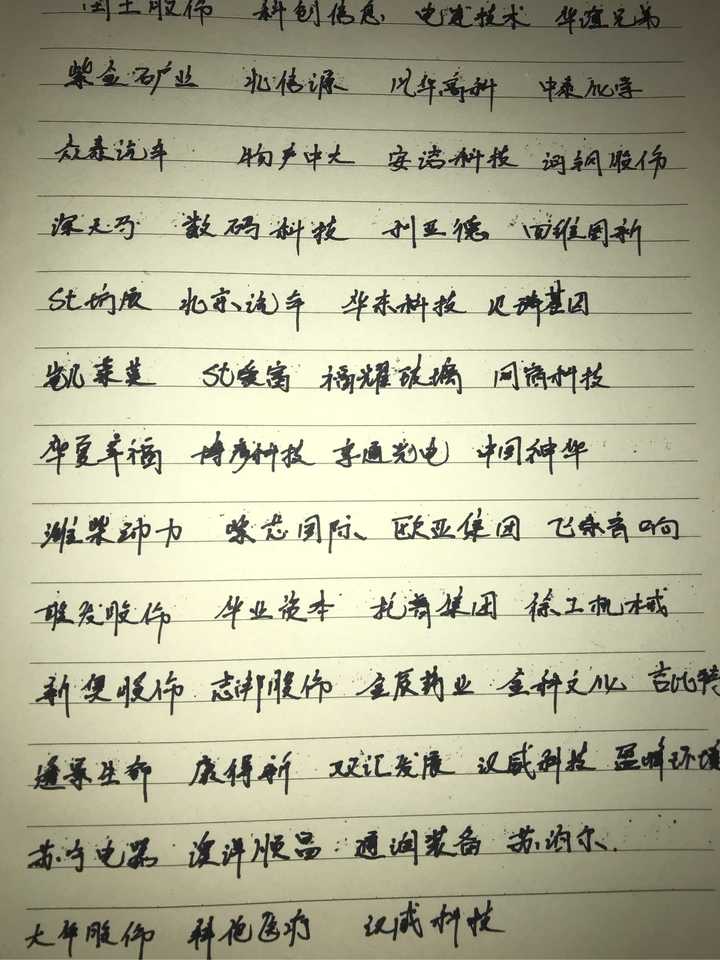 国土股份 科创信息 电连技术 华谊兄弟
紫金矿业 北信源 风华高科 中泰化学
众泰汽车 物产中大 安诺科技 河钢股份
深天马 数码科技 利亚德 四维图新
St坊展 北京汽车 华东科技 贝瑞基因
凯莱英 St爱富 福耀玻璃 网宿科技
华夏幸福 博彦科技 亨通光电 中国神华
潍柴动力 国际 欧亚集团 飞乐音响
联发股份 华业资本 托普集团 徐工机械
新奥股份 志邦股份 金辰药业 金科文化 吉比特
蓬莱生命 康得新 双汇发展 汉威科技 盈峰环境
苏宁电器 澳洋顺昌 通润装备 苏泊尔
大年股份 科苑医疗 汉威科技